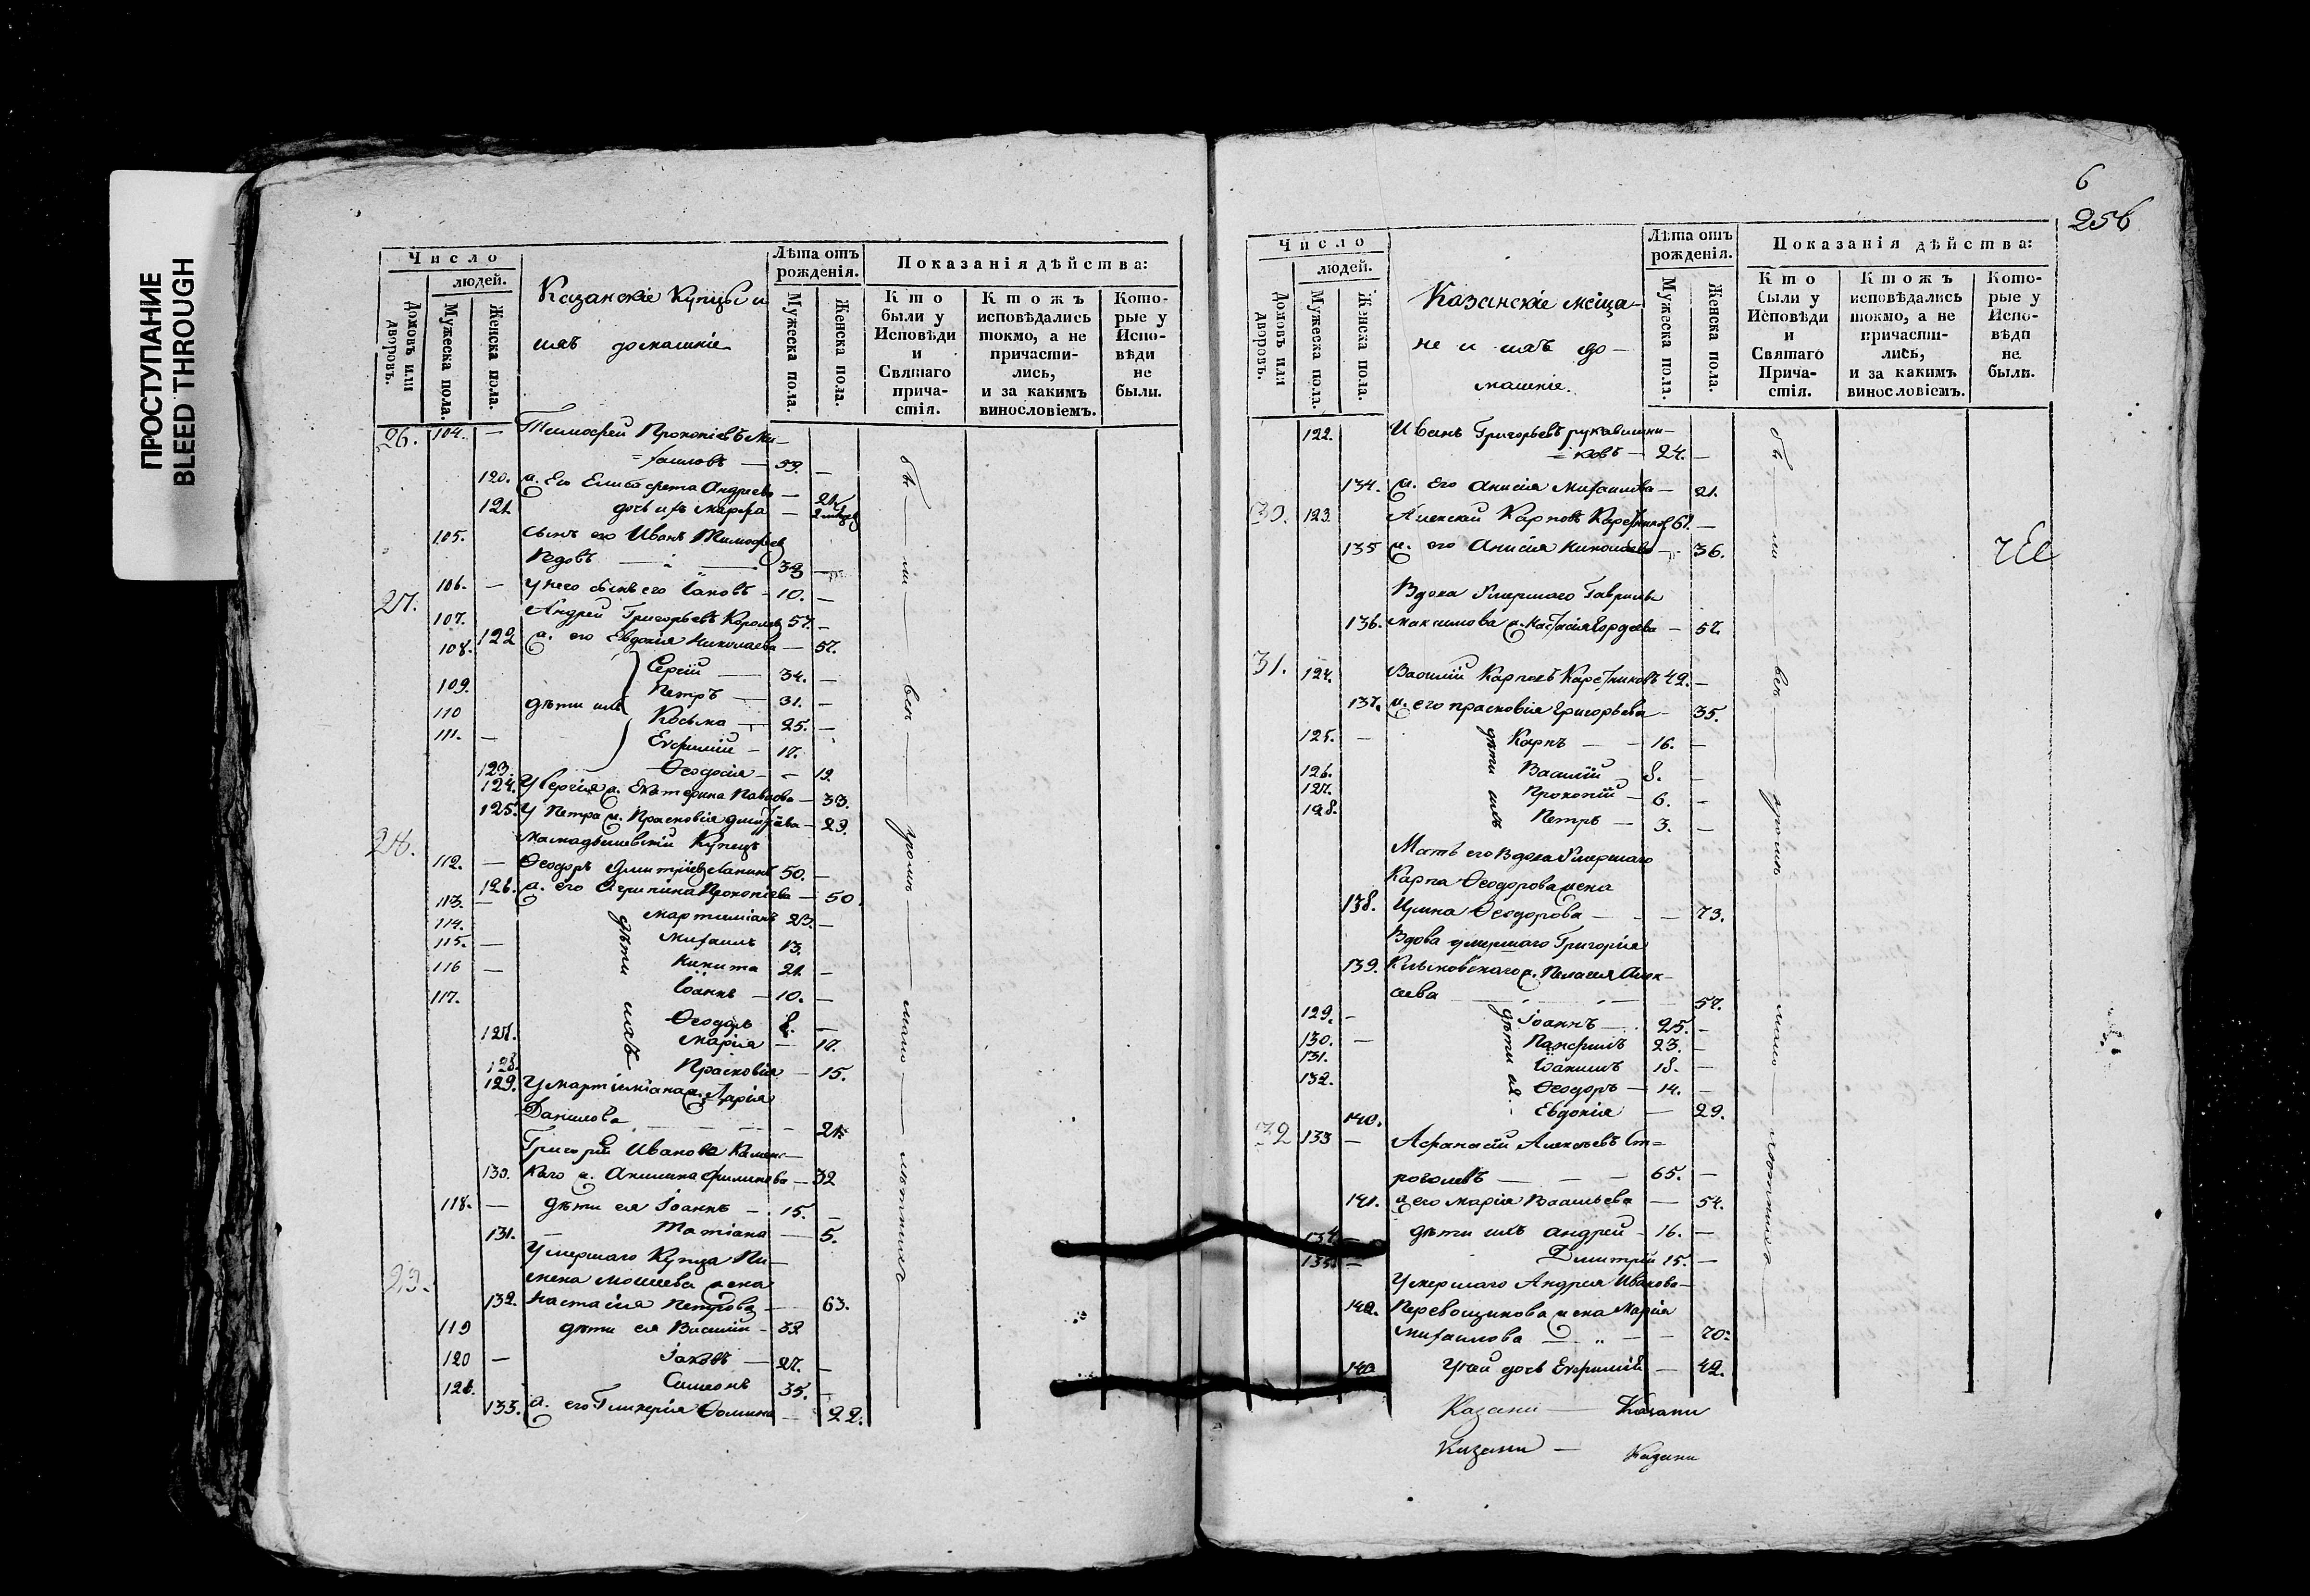 ПРОСТУПАНИЕ
BLEED THROUGH
Число
людей.
Домовъ или дворовъ.
Мужеска пола.
Женска пола.
Казанскіе Купцы и
ихъ домашніе
Лѣта отъ рожденія.
Мужеска пола.
Женска пола.
Показанія дѣйства:
Кто были у Исповѣди и Святаго причастія.
Ктожъ исповѣдались токмо, а не причастились, и за какимъ винословіемъ.
Которые у Исповѣди не были.
26. 104. — Тимофей Прокопіевъ Ми-
=хаиловъ — 59. —
120. ж. Его Елисавета Андреева — 21.
121. дочь ихъ Марфа — 2 мѣсяц
105. сынъ его Иванъ Тимофеев
Вдовъ — 38 —
106. — у него сынъ его Іаковъ - 10. —
27. 107. Андрей Григорьевъ Королев 57. —
122 ж. его Евдокія Николаева — 57.
108. дѣти ихъ Сергій — 34. —
109. Петръ — 31. —
110 Косьма — 25. —
111. — Евфимій — 17.
123. Ѳеодосія — 19.
124. У Сергія ж. Екатерина Павлова — 33.
125. У Петра ж. Прасковія Дмитріева — 29.
28. Мамадышевскій Купецъ
112. — Ѳеодоръ Дмитріев Лапинъ 50. —
126. ж. его Агрипина Прокопіева — 50.
113. — дѣти ихъ Мартиміанъ 23. —
114. Михаилъ 13.
115. — Никита 21. —
116 — Іоаннъ — 10. —
117. Ѳеодоръ 8. —
127. Марія — 17.
128. Прасковія — 15.
129. У Мартиміана ж. Дарія
Данилова — 21.
Григорій Иванова Каменс-
130. каго ж. Акилина Филипова — 32
118. — дѣти ея Іоаннъ — 15. —
131. — Татіана — 5.
29. Умершаго Купца Пи-
мена Мосеева жена
132. Настасія Петрова — 63.
119 дѣти ея Василій - 39
120 — Іаковъ — 27. —
121. Симеонъ 35. —
133. ж. его Гликерія Ѳомина — 22.
бы — ли — вси — кромѣ — мало — лѣтнихъ
6
256
Число
людей.
Домовъ или дворовъ.
Мужеска пола.
Женска пола.
Казанскіе мѣща-
не и ихъ до-
машніе.
Лѣта отъ рожденія.
Мужеска пола.
Женска пола.
Показанія дѣйства:
Кто были у Исповѣди и Святаго Причастія.
Ктожъ исповѣдались токмо, а не причастились, и за какимъ винословіемъ.
Которые у Исповѣди не были.
122. Иванъ Григорьевъ рукавишни-
=ковъ — 24. —
134. ж. его Анисія Михаилова — 21.
30. 123. Алексей Карповъ Каретников 61. —
135 ж. его Анисія Николаева — 36.
Вдова Умершаго Гаврилы
136. Максимова ж. Настасія Гордеева — 57.
31. 124. Василій Карповъ Каретниковъ 42. —
137. ж. его Прасковія Григорьева — 35.
125. — дѣти ихъ Карпъ — 16. —
126. Василій 8. —
127. Прокопій — 6. —
128. Петръ — 3. —
Мать его Вдова Умершаго
Карпа Ѳеодорова жена
138. Ирина Ѳеодорова — 73.
Вдова умершаго Григорія
139. ж. Пелагея Алек-
сеева — 57.
129. — дѣти ея Іоаннъ — 25. —
130. — Панфилъ 23. —
131. Іоакимъ 18. —
132. Ѳеодоръ — 14. —
140. Евдокія — 29.
32 133 — Афанасій Алексеевъ Ст=
роголевъ — 65. —
141. ж его Марія Васильева — 54.
134 — дѣти ихъ Андрей — 16. —
135. — Димитрій 15. —
Умершаго Андрея Иванова-
142. Перевощикова жена Марія
Михаилова — 70.
143 У ней дочь Евфимія — 42.
бы — ли — вси — кромѣ — мало — лѣтнихъ
Казани — Казани
Казани — Казани